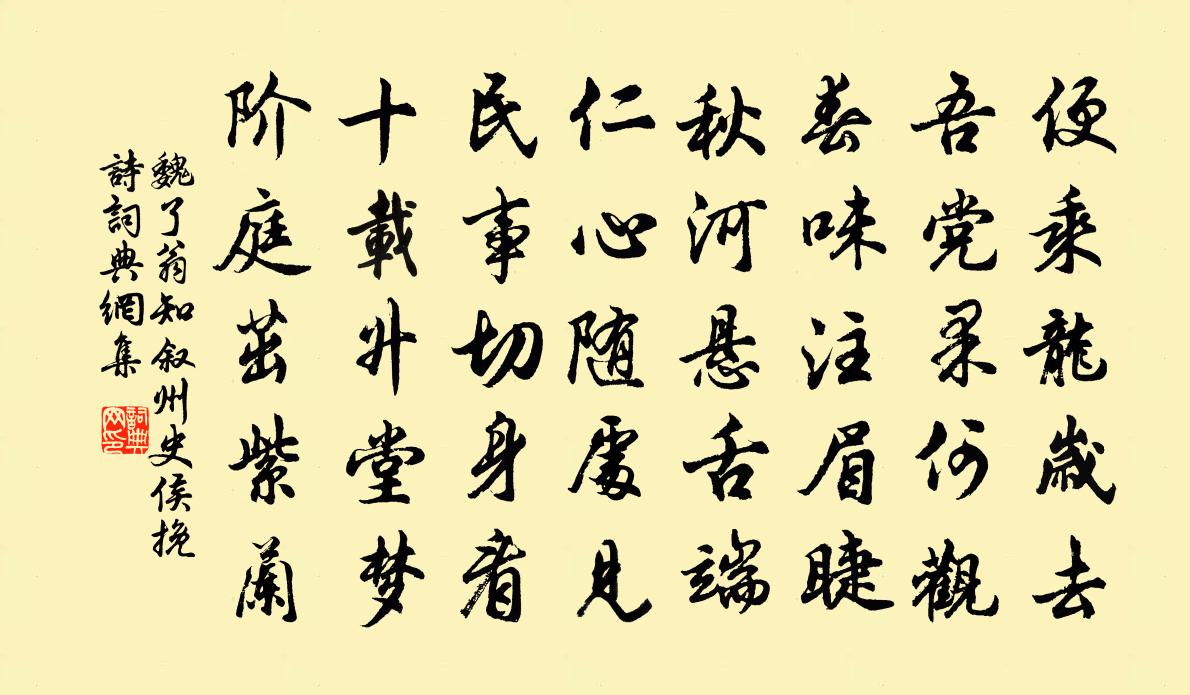 便乘龍歲去
吾党果何觀
春味注眉睫
秋河悬舌端
仁心随處见
民事切身看
十載升堂梦
阶庭茁紫蘭
魏了翁知叙州史侯挽
詩詞典網集
詞典
网印